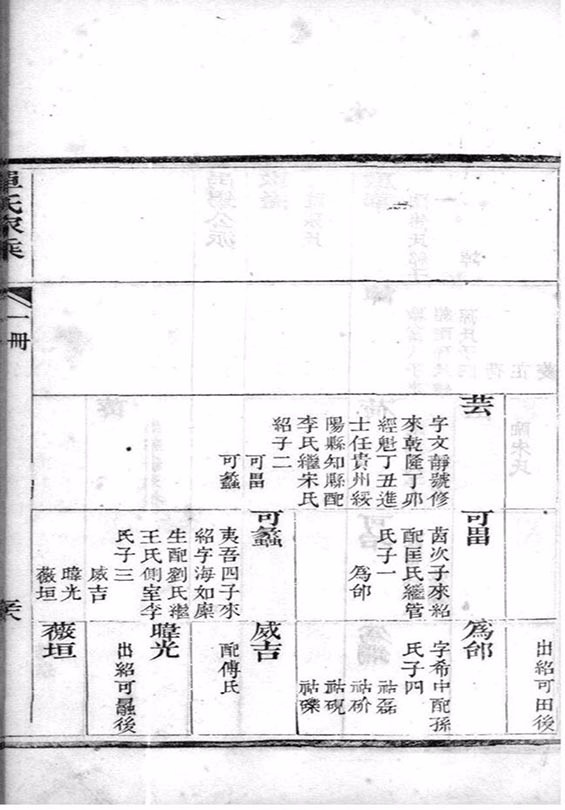 單氏家乘
一冊
芸
字文靜號修
來乾隆丁卯
經魁丁丑進
士任貴州綏
陽縣知縣配
李氏繼宋氏
紹子二
可㽞
可蠡
可㽞
茵次子來紹
配匡氏繼管
氏子一
為邰
可蠡
夷吾四子來
紹字海如廪
生配劉氏繼
王氏側室李
氏子三
威吉
暐光
薇垣
出紹可田後
為邰
字希中配孫
氏子四
祜磊
祜砎
祜硯
祜礫
威吉
配傅氏
暐光
出紹可融後
薇垣